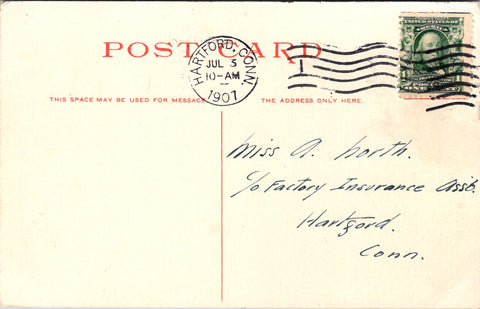 POST CARD
HARTFORD, CONN.
JUL 5
10-AM
1907
1
UNITED STATES OF
AMERICA
ONE CENT
THIS SPACE MAY BE USED FOR MESSAGE.
THE ADDRESS ONLY HERE.
Miss A. North.
c/o Factory Insurance Assb.
Hartford.
Conn.